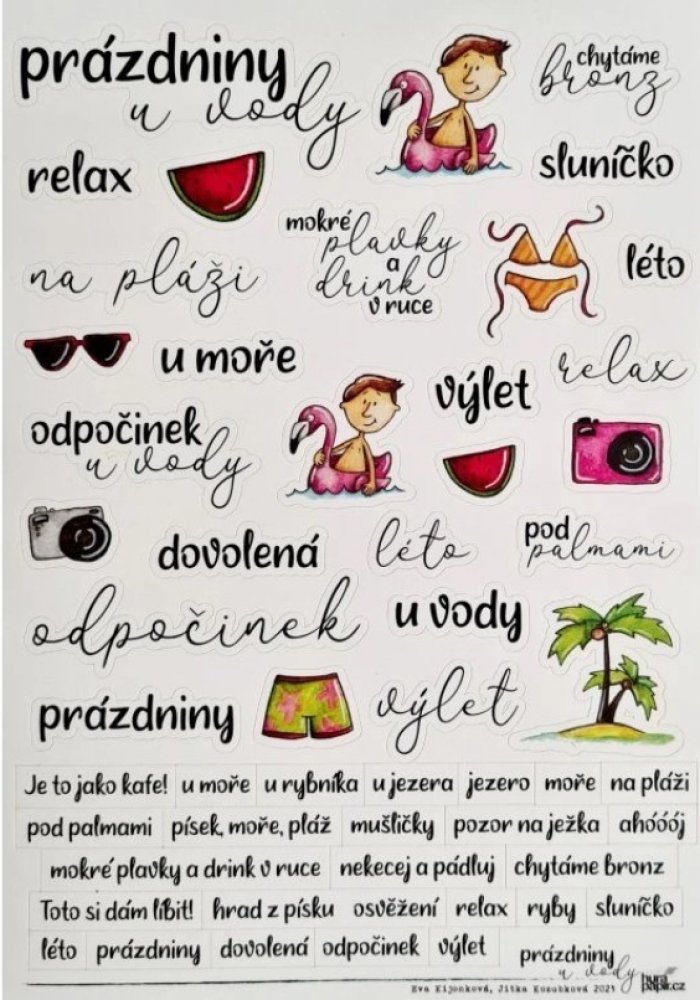 prázdniny
u vody
chytáme
bronz
relax
sluníčko
mokré
plavky
a
drink
v ruce
na pláži
léto
u moře
výlet
relax
odpočinek
u vody
dovolená
léto
pod
palmami
odpočinek
u vody
prázdniny
výlet
Je to jako kafe! u moře u rybníka u jezera jezero moře na pláži
pod palmami písek, moře, pláž mušličky pozor na ježka ahóóój
mokré plavky a drink v ruce nekecej a pádluj chytáme bronz
Toto si dám líbit! hrad z písku osvěžení relax ryby sluníčko
léto prázdniny dovolená odpočinek výlet
prázdniny
u vody
Eva Kijonková, Jitka Kozubková 2021
hura
papir.cz